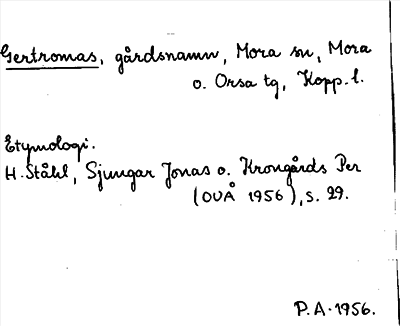 Gertromas, gårdsnamn, Mora sn, Mora
o. Orsa tg, Kopp. l.
Etymologi.
H. Ståhl, Sjungar Jonas o. Krongårds Per
(OUÅ 1956), s. 29.
P.A. 1956.